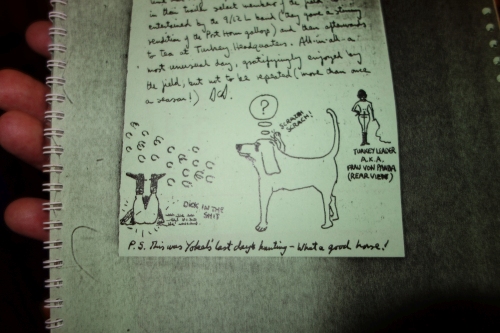 in their tooth select members of the field
entertained by the 9/12 L band (they gave a stirring
rendition of the "Post Horn gallop) and then afterwards
to tea at Turkey Headquarters. All-in-all-a
most unusual day, gratifyingly enjoyed by
the field, but not to be repeated (more than once
a season!)
?
SCRATCH
SCRATCH!
TURKEY LEADER
A.K.A.
FRAU VON PANDA
(REAR VIEW)
DICK IN THE
SHIT
P.S. This was Yokel's last day's hunting - What a good horse!